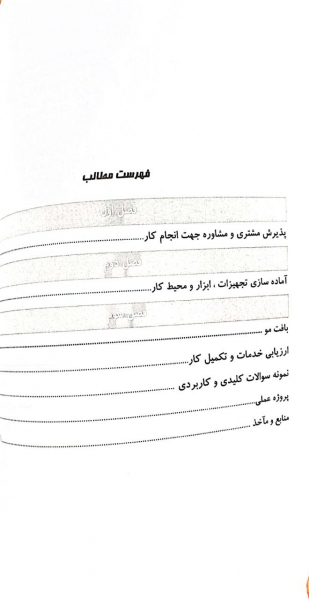 فهرست مطالب
فصل اول
پذیرش مشتری و مشاوره جهت انجام کار
فصل دوم
آماده سازی تجهیزات ، ابزار و محیط کار
فصل سوم
بافت مو
ارزیابی خدمات و تکمیل کار
نمونه سوالات کلیدی و کاربردی
پروژه عملی
منابع و مآخذ